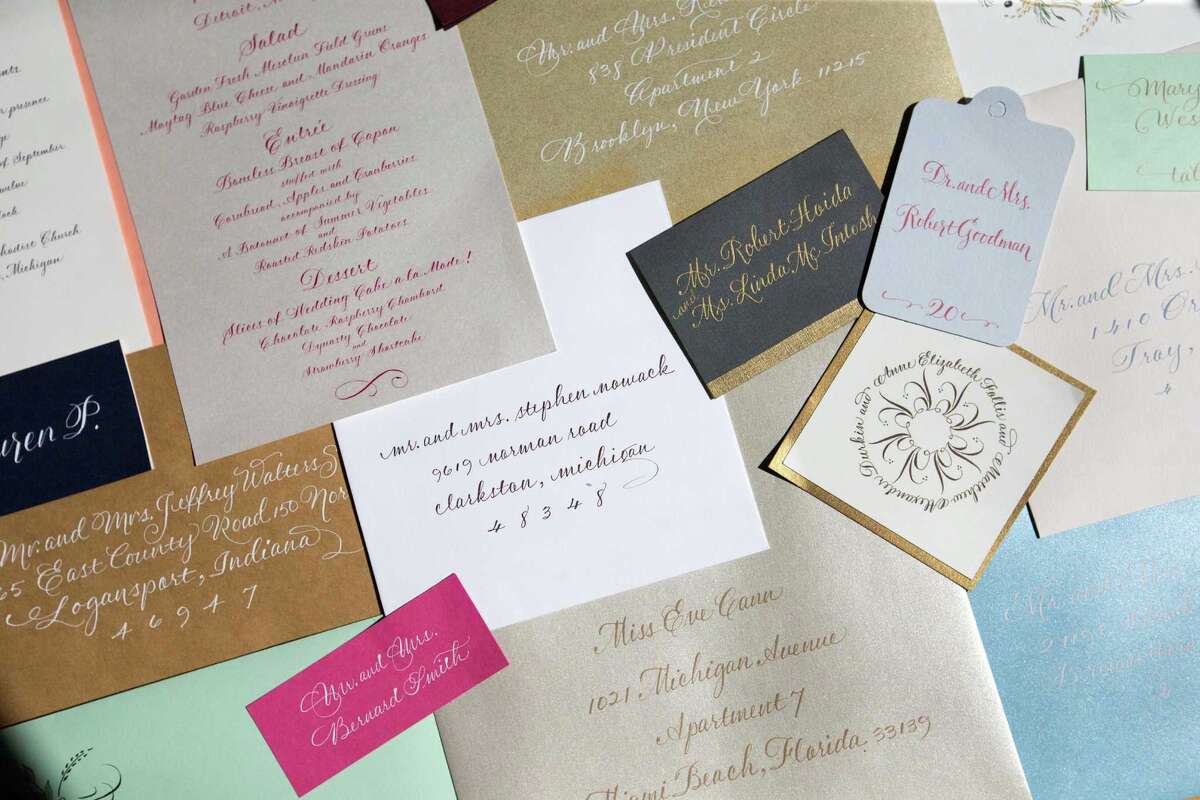 Detroit,
Salad
Garden Fresh Mesclun Field Greens
Maytag Blue Cheese and Mandarin Oranges
Raspberry Vinaigrette Dressing
Entrée
Boneless Breast of Capon
stuffed with
Cornbread, Apples and Cranberries
accompanied by
A Batounet of Summer Vegetables
and
Roasted Redskin Potatoes
Dessert
Slices of Wedding Cake a la Mode!
Chocolate Raspberry Chambord
Dynasty Chocolate
and
Strawberry Shortcake
presence
of September
Church
Michigan
Mr. and Mrs.
838 President Circle
Apartment 2
Brooklyn, New York 11215
Mr. Robert Hoida
and
Ms. Linda Mc Intosh
Dr. and Mrs.
Robert Goodman
20
Mary
Wes
Mr. and Mrs.
1410
Troy,
4
Anne Elizabeth Fallis and Matthew Alexander Durkin and
P.
Mr. and Mrs. Jeffrey Walters
65 East County Road 150 Nor
Logansport, Indiana
46947
mr. and mrs. stephen nowack
9619 norman road
clarkston, michigan
48348
Mr. and Mrs.
Bernard Smith
Miss Eve Cann
1021 Michigan Avenue
Apartment 7
Miami Beach, Florida 33139